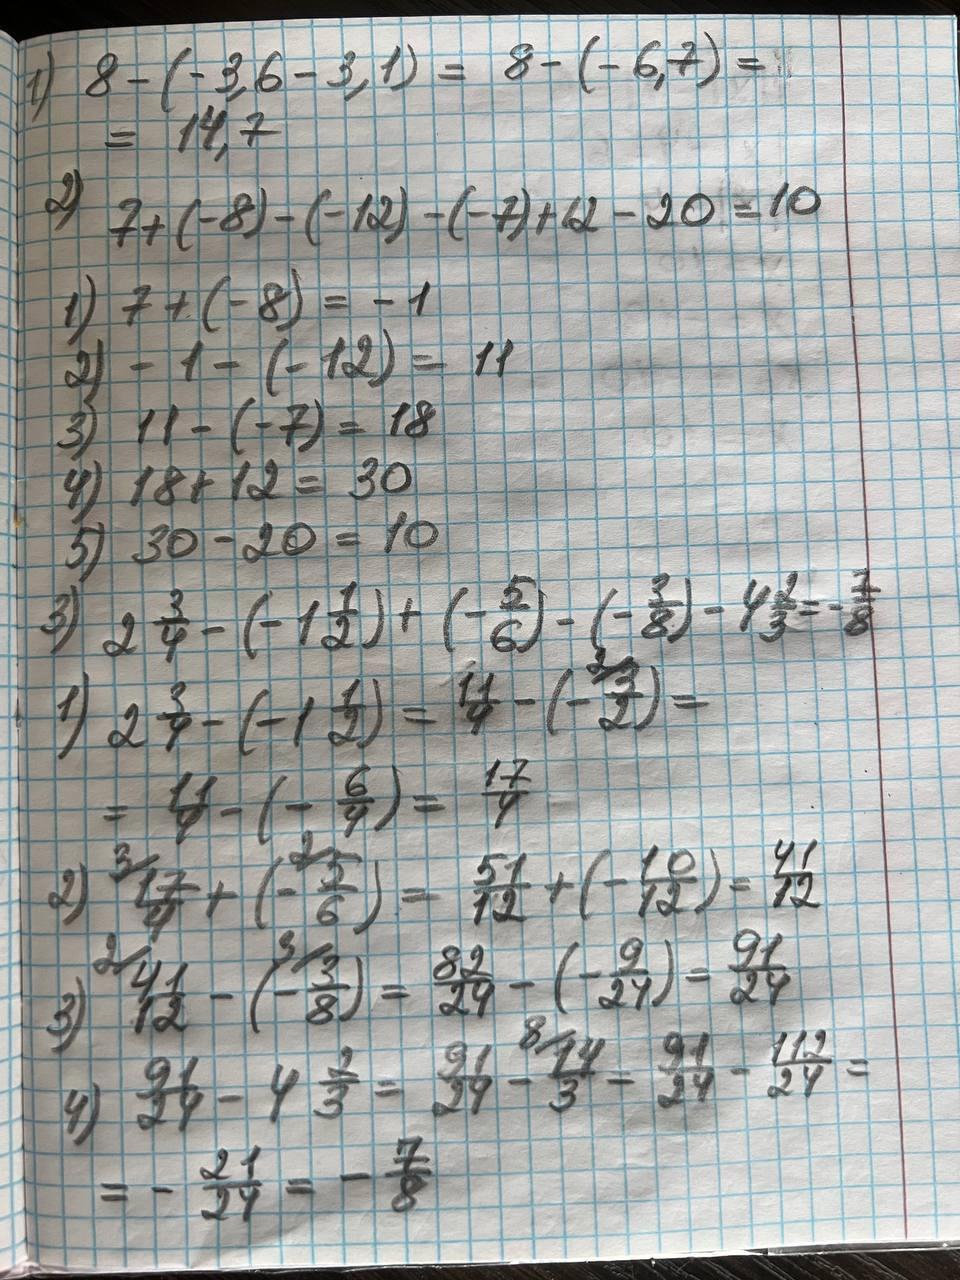 1) 8 - (-3,6 - 3,1) = 8 - (-6,7) =
= 14,7
2) 7 + (-8) - (-12) - (-7) + 12 - 20 = 10
1) 7 + (-8) = -1
2) -1 - (-12) = 11
3) 11 - (-7) = 18
4) 18 + 12 = 30
5) 30 - 20 = 10
3) 2 3/4 - (-1 1/2) + (-5/6) - (-3/8) - 4 2/3 = -7/8
1) 2 3/4 - (-1 1/2) = 11/4 - (- 2/ 3/2) =
= 11/4 - (-6/4) = 17/4
2) 3/ 17/4 + (- 2/ 5/6) = 51/12 + (-10/12) = 41/12
3) 2/ 41/12 - (- 3/ 3/8) = 82/24 - (-9/24) = 91/24
4) 91/24 - 4 2/3 = 91/24 - 8/ 14/3 = 91/24 - 112/24 =
= -21/24 = -7/8